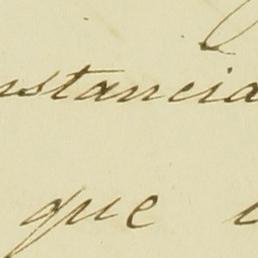 nstancia
que